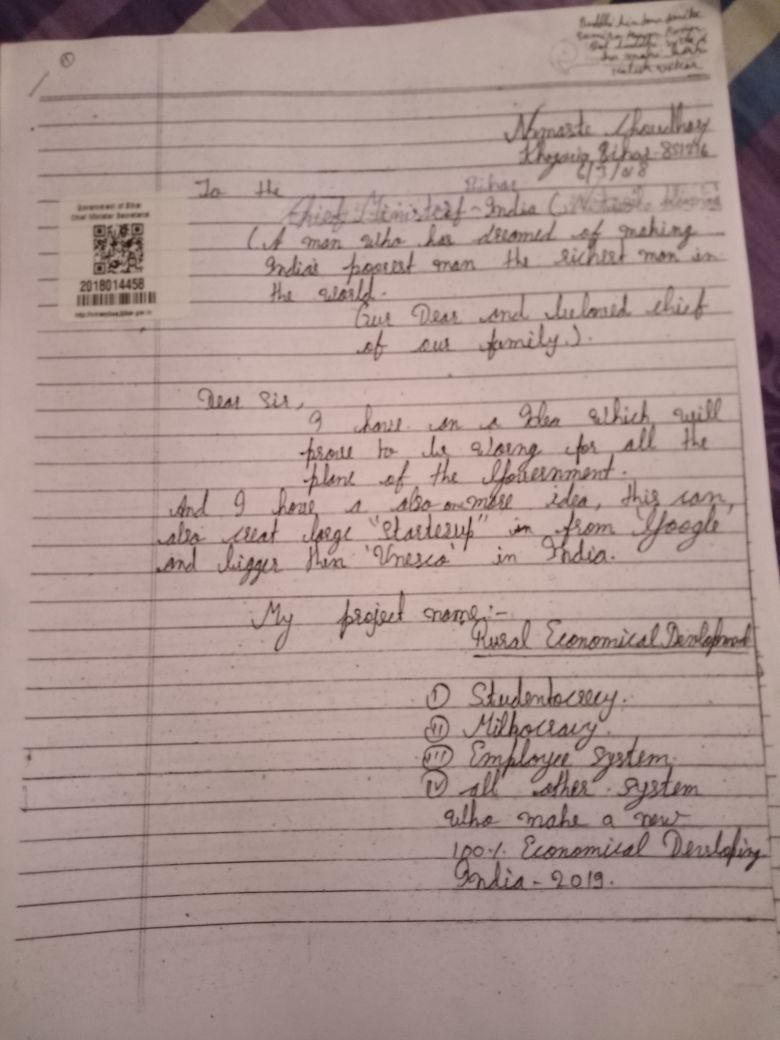 Namaste Choudhary
Khagaria, Bihar-851
Government of Bihar
Chief Minister Secretariat
2018014458
To the Bihar
Chief Minister of-India (
(A man who has dreamed of making
India's poorest man the richest man in
the world.
Our Dear and beloved chief
of our family.).
Dear Sir,
I have on a Idea which will
prove to be worng for all the
plane of the Government.
And I have a also one more idea, this can,
also creat large "Starterup" in from Google
and bigger then 'Unesco' in India.
My project name:-
Rural Economical Development
(I) Studentocrecy.
(II) Milkocracy.
(III) Employee System.
(IV) all other system
who make a new
100% Economical Developing
India-2019.